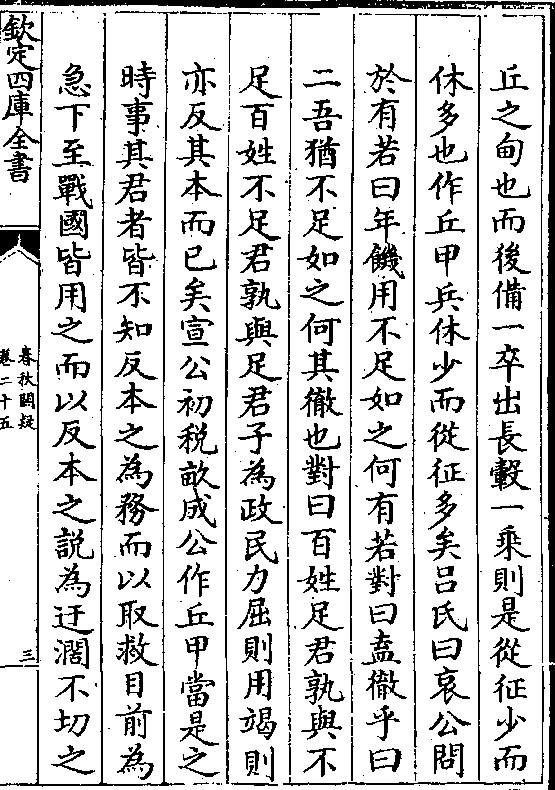 丘之甸也而後備一卒出長轂一乘則是從征少而
休多也作丘甲兵休少而從征多矣吕氏曰哀公問
於有若曰年饑用不足如之何有若對曰盍徹乎曰
二吾猶不足如之何其徹也對曰百姓足君孰與不
足百姓不足君孰與足君子為政民力屈則用竭則
亦反其本而已矣宣公初税畝成公作丘甲當是之
時事其君者皆不知反本之為務而以取救目前為
急下至戰國皆用之而以反本之説為迂濶不切之
欽定四庫全書
春秋闕疑
卷二十五
三